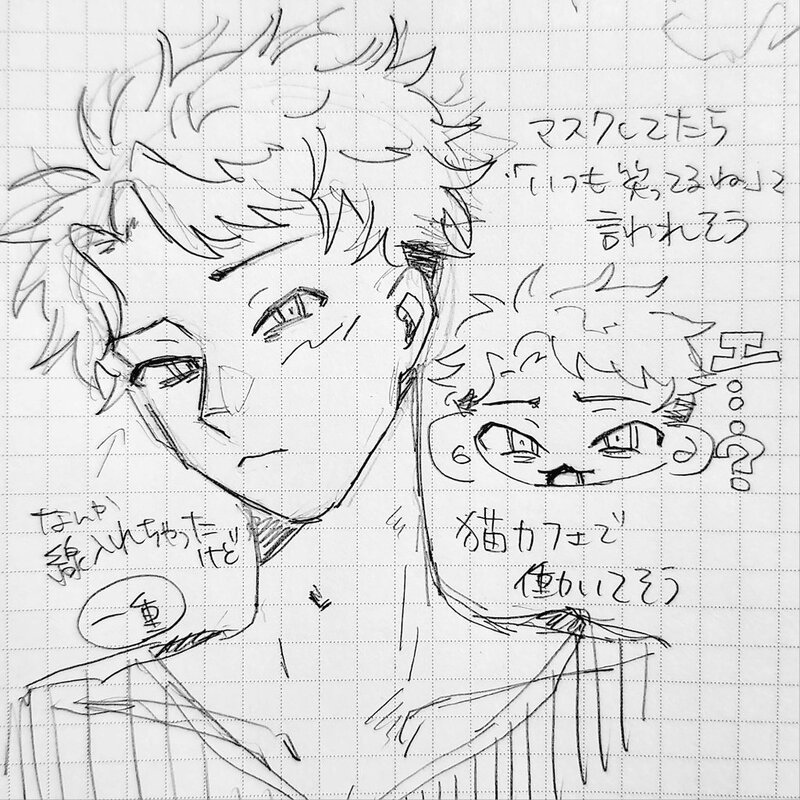 マスクしてたら
「いつも笑ってるね」って
言われそう
エ…?
猫カフェで
働いてそう
なんか
線入れちゃったけど
一重